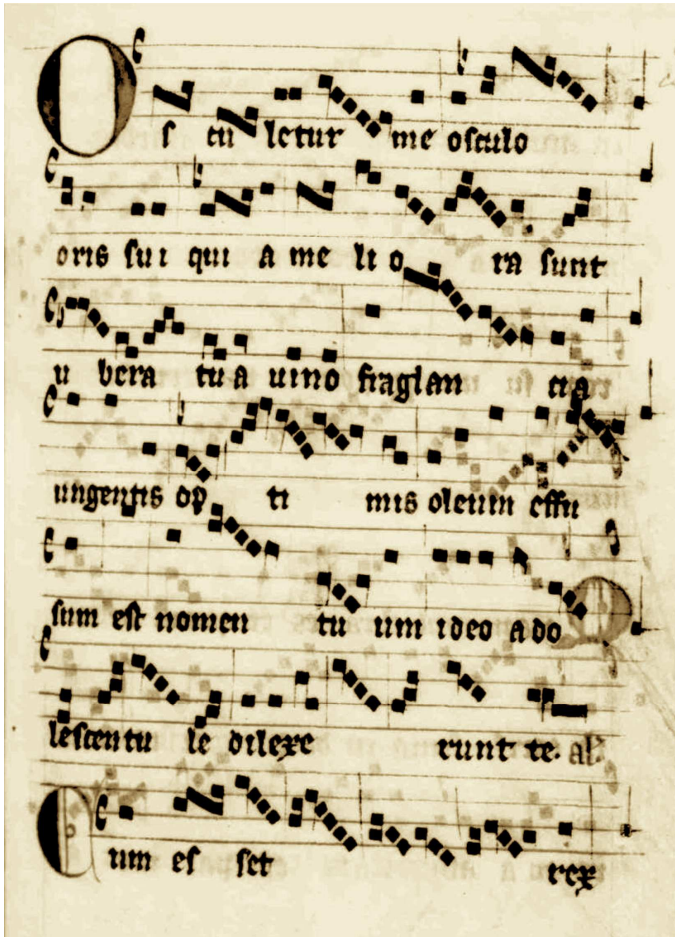 Os cu letur me osculo
oris sui qui a me li o ra sunt
u bera tu a uino fraglan tia
ungentis op ti mis oleum effu
sum est nomen tu um ideo a do
lescentu le dilexe runt te. al'
Cum es set rex